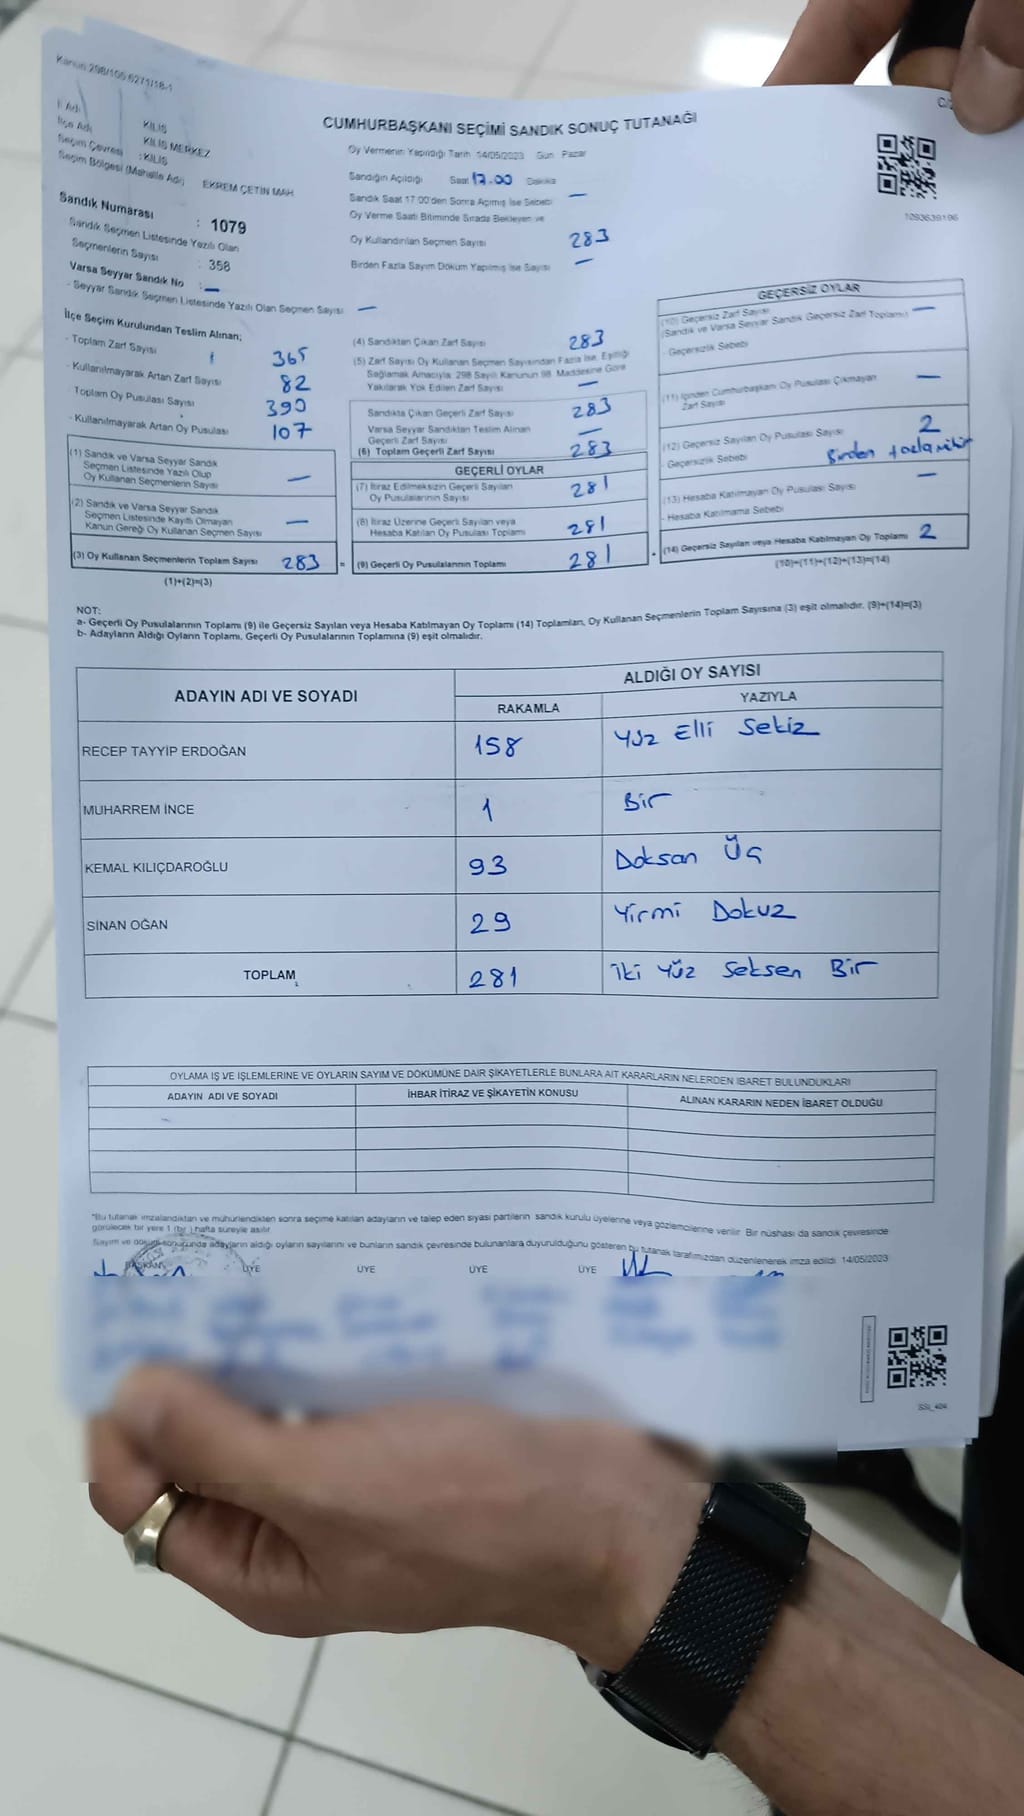 Kanun:298/105 6271/18-1
C/2
CUMHURBAŞKANI SEÇİMİ SANDIK SONUÇ TUTANAĞI
İl Adı KİLİS
İlçe Adı KİLİS MERKEZ
Seçim Çevresi :KİLİS
Seçim Bölgesi (Mahalle Adı) EKREM ÇETİN MAH
Sandık Numarası : 1079
Sandık Seçmen Listesinde Yazılı Olan
Seçmenlerin Sayısı : 358
Varsa Seyyar Sandık No : —
- Seyyar Sandık Seçmen Listesinde Yazılı Olan Seçmen Sayısı —
Oy Vermenin Yapıldığı Tarih 14/05/2023 Gün Pazar
Sandığın Açıldığı Saat 17.00 Dakika
Sandık Saat 17:00'den Sonra Açılmış İse Sebebi —
Oy Verme Saati Bitiminde Sırada Bekleyen ve
Oy Kullandırılan Seçmen Sayısı 283
Birden Fazla Sayım Döküm Yapılmış İse Sayısı —
1093639196
İlçe Seçim Kurulundan Teslim Alınan;
- Toplam Zarf Sayısı 365
- Kullanılmayarak Artan Zarf Sayısı 82
- Toplam Oy Pusulası Sayısı 390
- Kullanılmayarak Artan Oy Pusulası 107
(1) Sandık ve Varsa Seyyar Sandık
Seçmen Listesinde Yazılı Olup
Oy Kullanan Seçmenlerin Sayısı —
(2) Sandık ve Varsa Seyyar Sandık
Seçmen Listesinde Kayıtlı Olmayan
Kanun Gereği Oy Kullanan Seçmen Sayısı —
(3) Oy Kullanan Seçmenlerin Toplam Sayısı 283 =
(1)+(2)=(3)
(4) Sandıktan Çıkan Zarf Sayısı 283
(5) Zarf Sayısı Oy Kullanan Seçmen Sayısından Fazla İse, Eşitliği
Sağlamak Amacıyla, 298 Sayılı Kanunun 98. Maddesine Göre
Yakılarak Yok Edilen Zarf Sayısı —
Sandıkta Çıkan Geçerli Zarf Sayısı 283
Varsa Seyyar Sandıktan Teslim Alınan
Geçerli Zarf Sayısı —
(6) Toplam Geçerli Zarf Sayısı 283
GEÇERLİ OYLAR
(7) İtiraz Edilmeksizin Geçerli Sayılan
Oy Pusulalarının Sayısı 281
(8) İtiraz Üzerine Geçerli Sayılan veya
Hesaba Katılan Oy Pusulası Toplamı 281
(9) Geçerli Oy Pusulalarının Toplamı 281
GEÇERSİZ OYLAR
(10) Geçersiz Zarf Sayısı
(Sandık ve Varsa Seyyar Sandık Geçersiz Zarf Toplamı) —
- Geçersizlik Sebebi
(11) İçinden Cumhurbaşkanı Oy Pusulası Çıkmayan
Zarf Sayısı —
(12) Geçersiz Sayılan Oy Pusulası Sayısı 2
- Geçersizlik Sebebi Birden fazla mühür
(13) Hesaba Katılmayan Oy Pusulası Sayısı —
- Hesaba Katılmama Sebebi
(14) Geçersiz Sayılan veya Hesaba Katılmayan Oy Toplamı 2
(10)+(11)+(12)+(13)=(14)
NOT:
a- Geçerli Oy Pusulalarının Toplamı (9) ile Geçersiz Sayılan veya Hesaba Katılmayan Oy Toplamı (14) Toplamları, Oy Kullanan Seçmenlerin Toplam Sayısına (3) eşit olmalıdır. (9)+(14)=(3)
b- Adayların Aldığı Oyların Toplamı, Geçerli Oy Pusulalarının Toplamına (9) eşit olmalıdır.
ADAYIN ADI VE SOYADI ALDIĞI OY SAYISI
RAKAMLA YAZIYLA
RECEP TAYYİP ERDOĞAN 158 Yüz Elli Sekiz
MUHARREM İNCE 1 Bir
KEMAL KILIÇDAROĞLU 93 Doksan Üç
SİNAN OĞAN 29 Yirmi Dokuz
TOPLAM 281 İki Yüz Seksen Bir
OYLAMA İŞ VE İŞLEMLERİNE VE OYLARIN SAYIM VE DÖKÜMÜNE DAİR ŞİKAYETLERLE BUNLARA AİT KARARLARIN NELERDEN İBARET BULUNDUKLARI
ADAYIN ADI VE SOYADI İHBAR İTİRAZ VE ŞİKAYETİN KONUSU ALINAN KARARIN NEDEN İBARET OLDUĞU
*Bu tutanak imzalandıktan ve mühürlendikten sonra seçime katılan adayların ve talep eden siyasi partilerin sandık kurulu üyelerine veya gözlemcilerine verilir. Bir nüshası da sandık çevresinde
görülecek bir yere 1 (bir) hafta süreyle asılır.
Sayım ve döküm sonucunda adayların aldığı oyların sayılarını ve bunların sandık çevresinde bulunanlara duyurulduğunu gösteren bu tutanak tarafımızdan düzenlenerek imza edildi. 14/05/2023
BAŞKAN ÜYE ÜYE ÜYE ÜYE
SSI_404